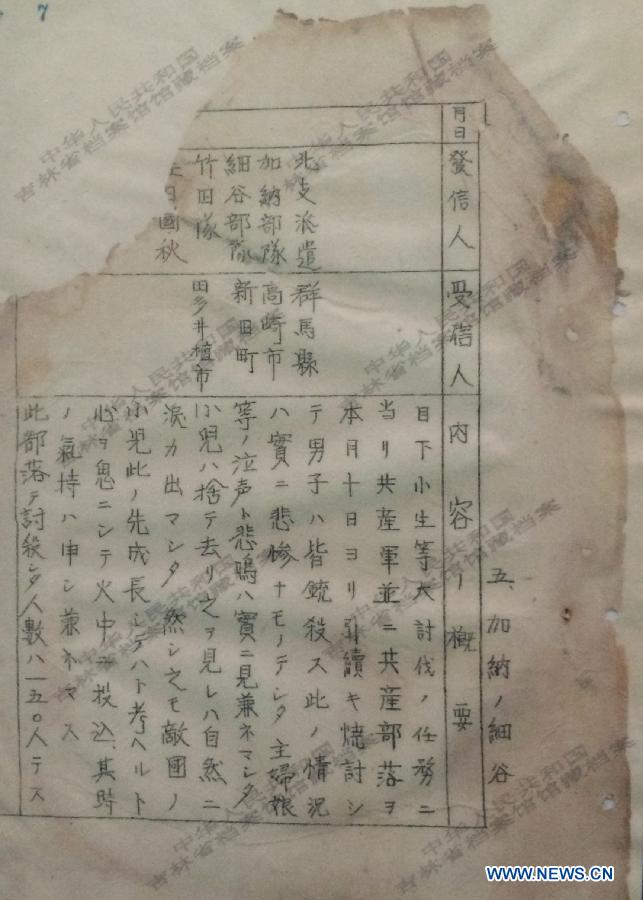 7
五、加納ノ細谷
月日
發信人
受信人
内容ノ概要
北支派遣
加納部隊
細谷部隊
竹田隊
國秋
群馬縣
高崎市
新田町
田多井植市
目下小生等大討伐ノ任務ニ
当リ共産軍並ニ共産部落ヲ
本月十日ヨリ引續キ焼討シ
テ男子ハ皆銃殺ス此ノ情況
ハ實ニ悲惨ナモノテシタ主婦娘
等ノ泣声ト悲鳴ハ實ニ見兼ネマシタ
小児ハ捨テ去リ之ヲ見レハ自然ニ
涙カ出マシタ 然シ之モ敵國ノ
小児此ノ先成長シテハト考ヘルト
心ヲ鬼ニシテ火中ニ投込、其時
ノ氣持ハ申シ兼ネマス
此部落テ討殺シタ人數ハ一五〇人テス
中华人民共和国
吉林省档案馆馆藏档案
WWW.NEWS.CN